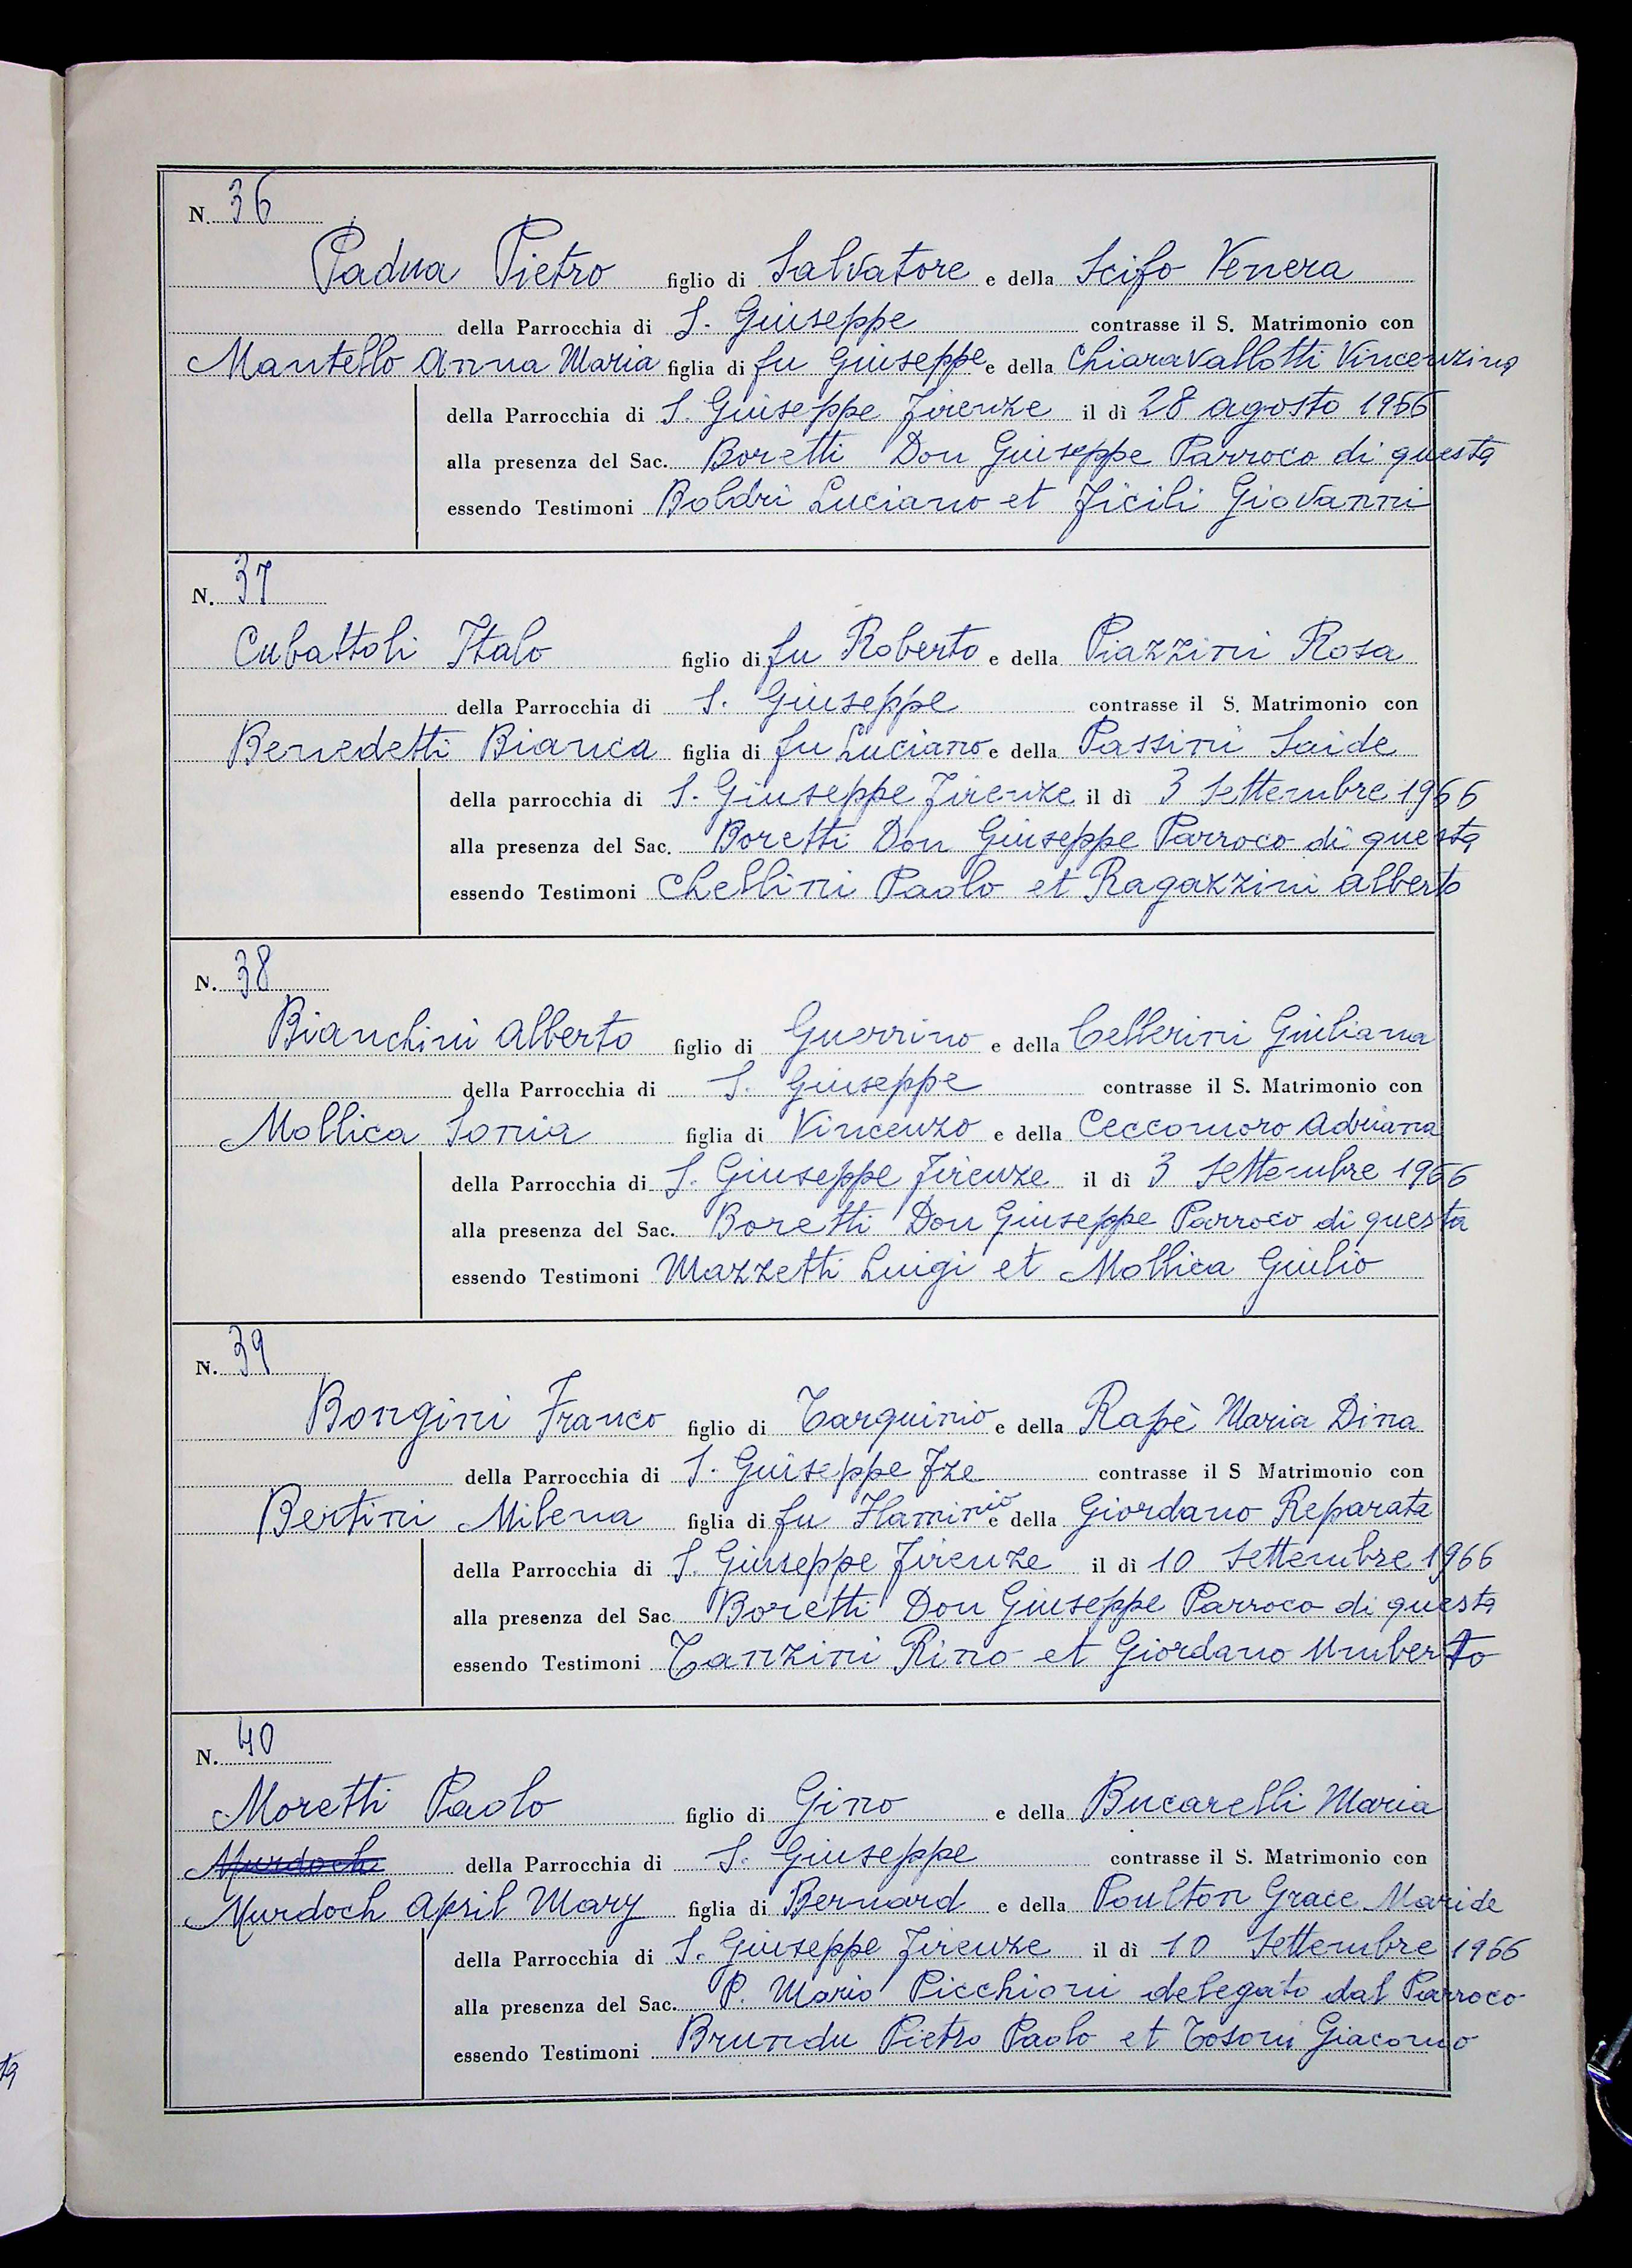 N. 36
Padua Pietro figlio di Salvatore e della Scifo Venera
della Parrocchia di S. Giuseppe contrasse il S. Matrimonio con
Mantello Anna Maria figlia di fu Giuseppe e della Chiaravallotti Vincenzina
della Parrocchia di S. Giuseppe Firenze il dì 28 agosto 1966
alla presenza del Sac. Boretti Don Giuseppe Parroco di questa
essendo Testimoni Boldri Luciano et Ficili Giovanni
N. 37
Cubattoli Italo figlio di fu Roberto e della Piazzini Rosa
della Parrocchia di S. Giuseppe contrasse il S. Matrimonio con
Benedetti Bianca figlia di fu Luciano e della Passini Saide
della parrocchia di S. Giuseppe Firenze il dì 3 Settembre 1966
alla presenza del Sac. Boretti Don Giuseppe Parroco di questa
essendo Testimoni Chellini Paolo et Ragazzini Alberto
N. 38
Bianchini Alberto figlio di Guerrino e della Cellerini Giuliana
della Parrocchia di S. Giuseppe contrasse il S. Matrimonio con
Mollica Sonia figlia di Vincenzo e della Ceccomoro Adriana
della Parrocchia di S. Giuseppe Firenze il dì 3 Settembre 1966
alla presenza del Sac. Boretti Don Giuseppe Parroco di questa
essendo Testimoni Mazzetti Luigi et Mollica Giulio
N. 39
Bongini Franco figlio di Tarquinio e della Rapè Maria Dina
della Parrocchia di S. Giuseppe Fze contrasse il S Matrimonio con
Bertini Milena figlia di fu Flaminio e della Giordano Reparata
della Parrocchia di S. Giuseppe Firenze il dì 10 Settembre 1966
alla presenza del Sac. Boretti Don Giuseppe Parroco di questa
essendo Testimoni Tanzini Rino et Giordano Umberto
N. 40
Moretti Paolo figlio di Gino e della Bucarelli Maria
Murdoch della Parrocchia di S. Giuseppe contrasse il S. Matrimonio con
Murdoch April Mary figlia di Bernard e della Poulton Grace Maride
della Parrocchia di S. Giuseppe Firenze il dì 10 Settembre 1966
alla presenza del Sac. P. Mario Picchioni delegato dal Parroco
essendo Testimoni Brundu Pietro Paolo et Tosoni Giacomo